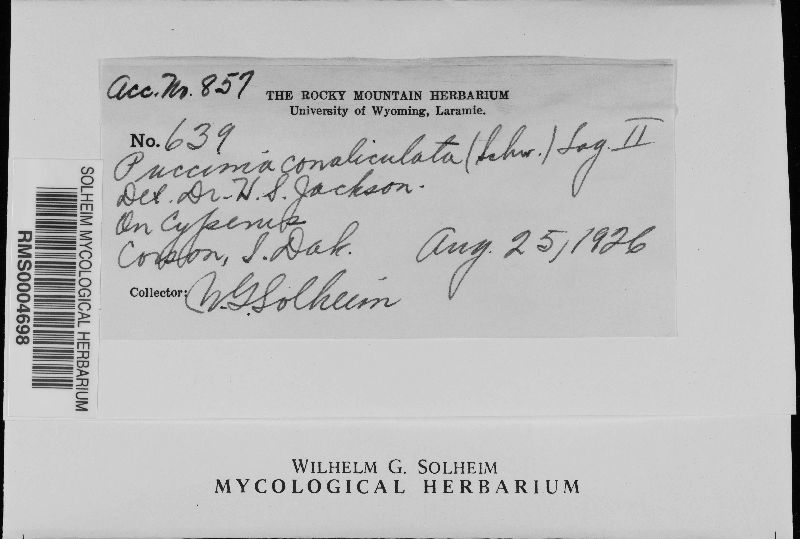 Acc. No. 857
THE ROCKY MOUNTAIN HERBARIUM
University of Wyoming, Laramie.
No. 639
Puccinia canaliculata (Schw.) Lag. II
Det. Dr. H. S. Jackson.
On Cyperus
Corson, S. Dak. Aug. 25, 1926
Collector: W.G. Solheim
SOLHEIM MYCOLOGICAL HERBARIUM
RMS0004698
WILHELM G. SOLHEIM
MYCOLOGICAL HERBARIUM